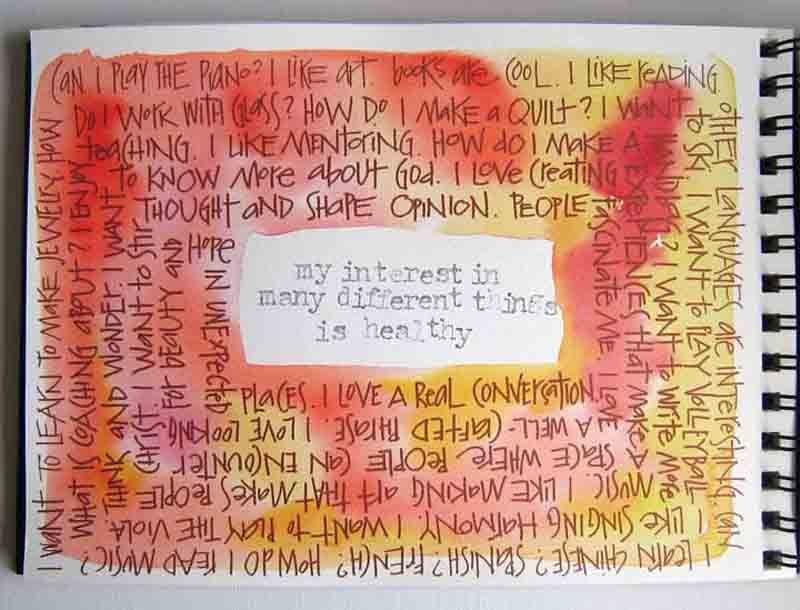 CAN I PLAY THE PIANO? I LIKE ART. BOOKS ARE COOL. I LIKE READING
OTHER LANGUAGES ARE INTERESTING. CAN
I LEARN CHINESE? SPANISH? FRENCH? HOW DO I READ MUSIC?
I WANT TO LEARN TO MAKE JEWELRY. HOW
DO I WORK WITH GLASS? HOW DO I MAKE A QUILT? I WANT
TO SKI. I WANT TO PLAY VOLLEYBALL.
I LIKE SINGING HARMONY. I WANT TO PLAY THE VIOLA.
WHAT IS COACHING ABOUT? I ENJOY
TEACHING. I LIKE MENTORING. HOW DO I MAKE A
I WANT TO WRITE MORE
MUSIC. I LIKE MAKING ART THAT MAKES PEOPLE
THINK AND WONDER. I WANT
TO KNOW MORE ABOUT GOD. I LOVE CREATING
EXPERIENCES THAT MAKE A
SPACE WHERE PEOPLE CAN ENCOUNTER
CHRIST. I WANT TO STIR
THOUGHT AND SHAPE OPINION. PEOPLE
FASCINATE ME. I LOVE
A WELL-CRAFTED PHRASE. I LOVE LOOKING
FOR BEAUTY AND
HOPE
IN UNEXPECTED
PLACES. I LOVE A REAL CONVERSATION.
my interest in
many different things
is healthy